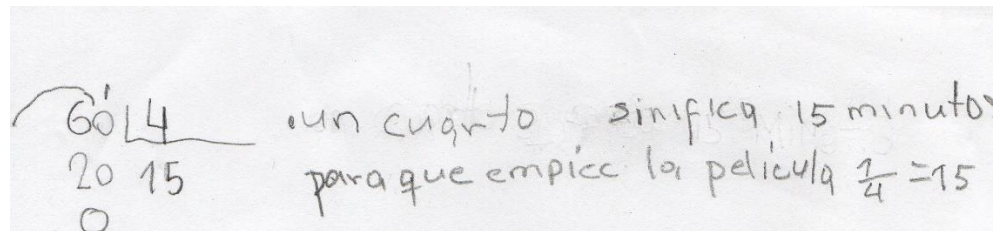 60 4 .un cuarto sinifica 15 minutos
20 15 para que empiece la película 1/4 = 15
0